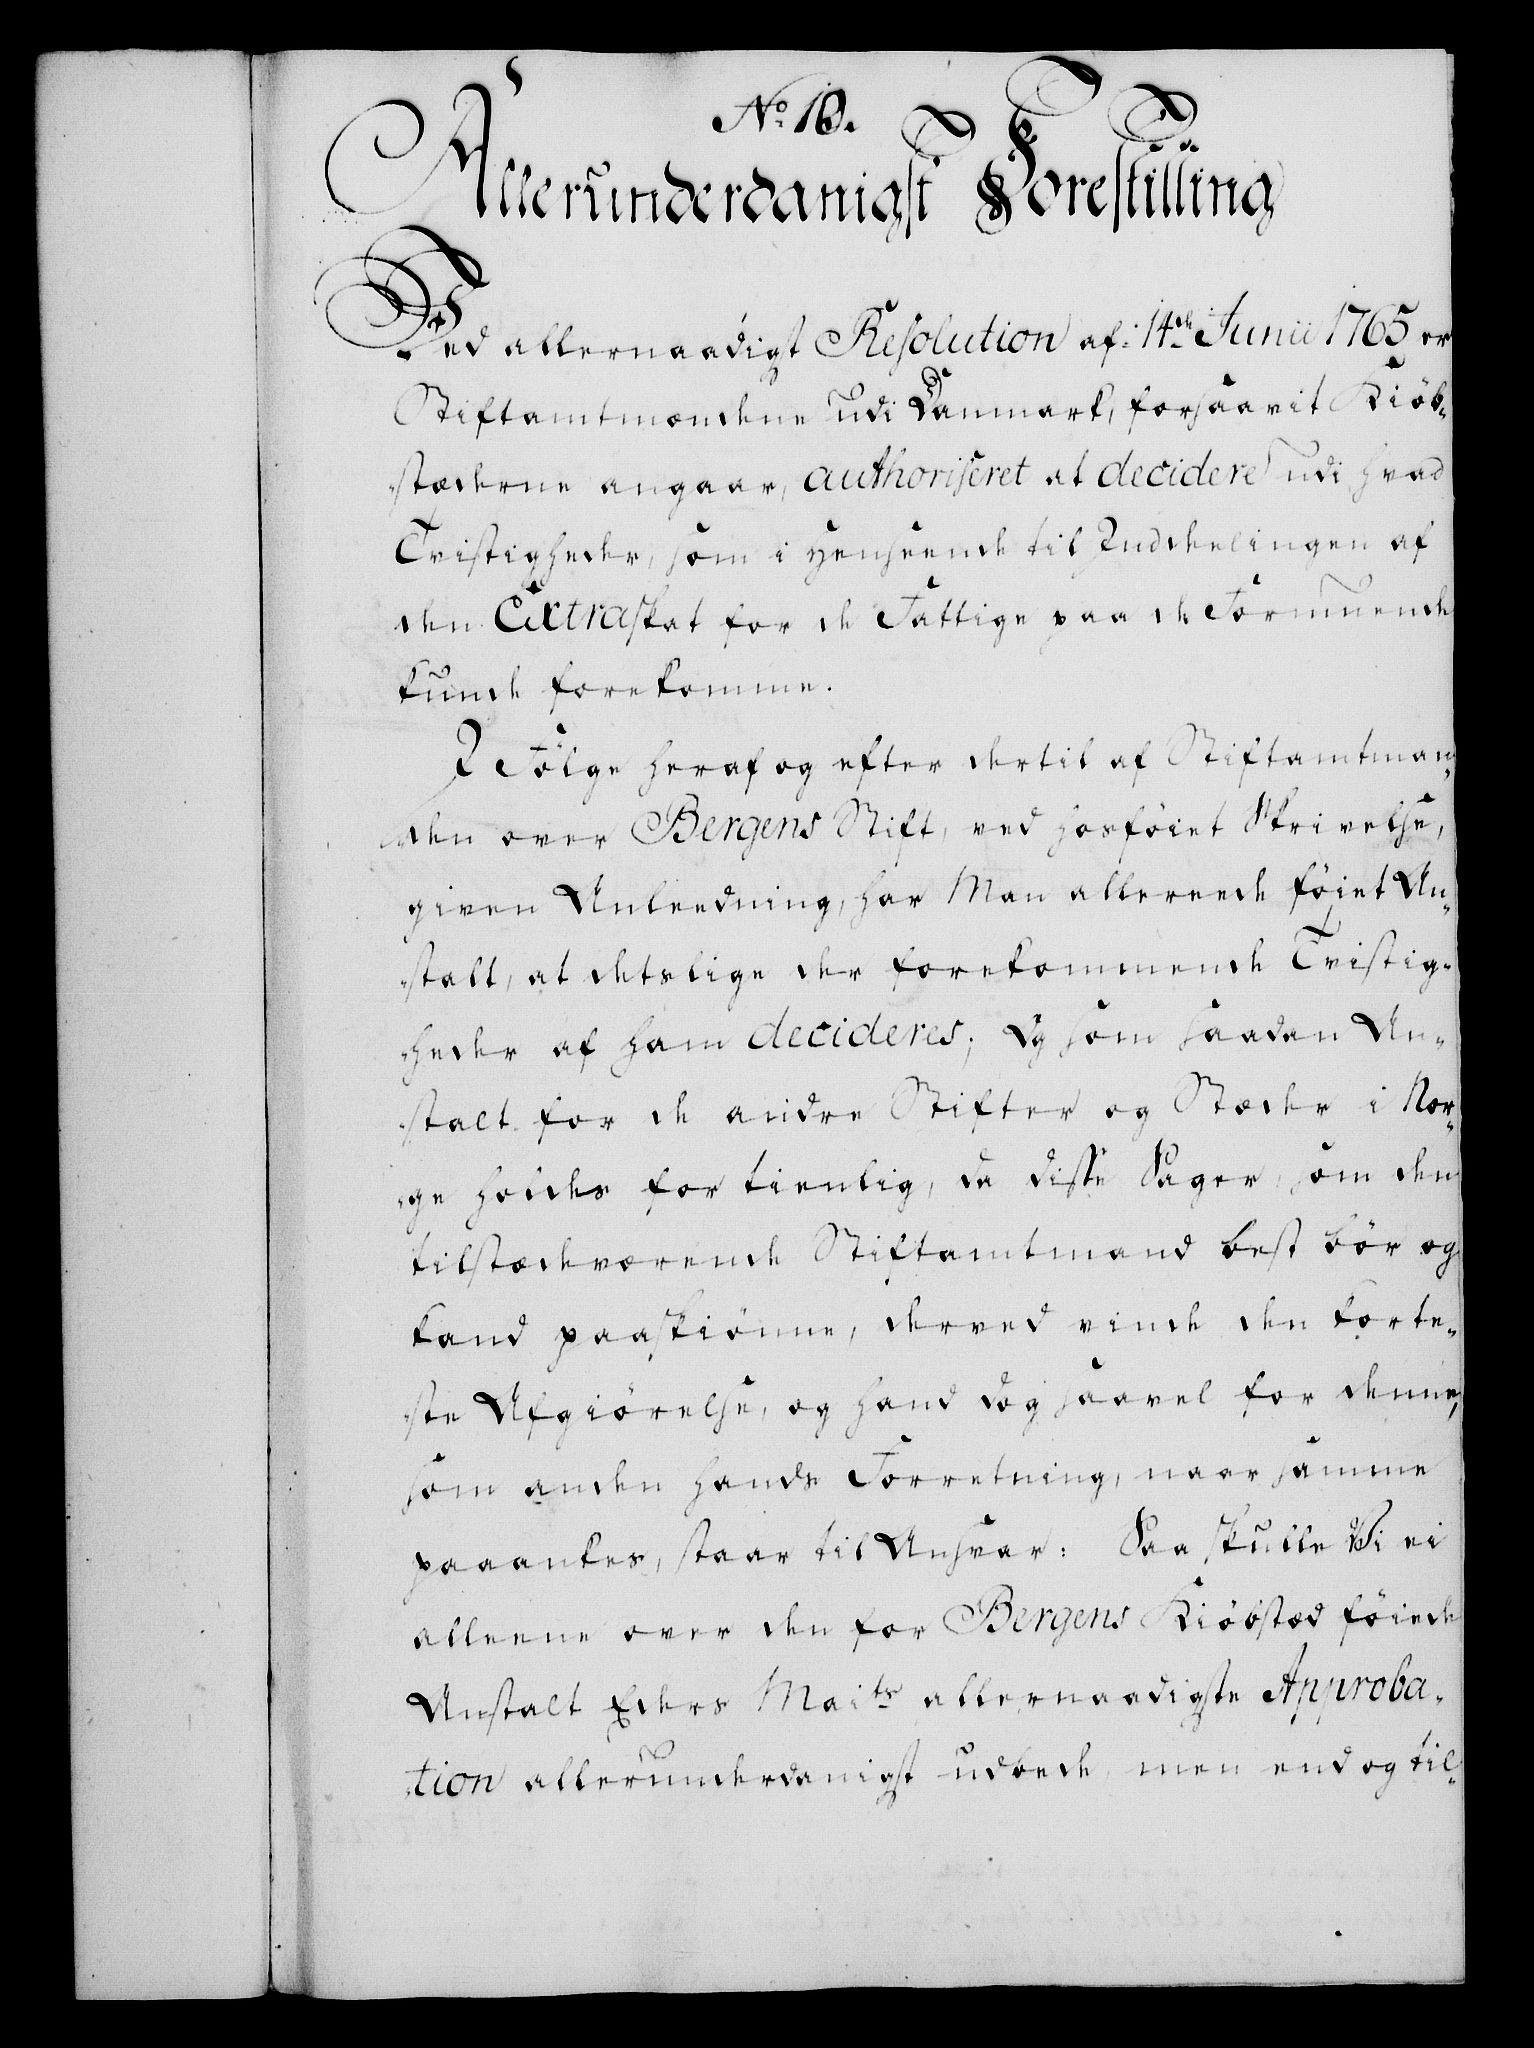 No. 16.
Allerunderdanigst Forestilling
Ved allernaadigst Resolution af 14de Junii 1765 er
Stiftamtmændene udi Danmark, forsaavit Kiöb-
stæderne angaar, authoriseret at decidere udi hvad
Tvistigheder, som i Henseende til Inddelingen af
den Extraskat for de Fattige paa de Formuende
kunde forekomme.
I Fölge heraf og efter dertil af Stiftamtman-
den over Bergens Stift, ved hosföiet Skrivelse,
given Anleedning, har Man allereede föiet An-
stalt, at detslige der forekommende Tvistig-
heder af ham decideres; Og som saadan An-
stalt for de andre Stifter og Stæder i Nor-
ge holdes for tienlig, da disse Sager, som den
tilstædeværende Stiftamtmand best bör og
kand paaskiönne, derved vinde den korte-
ste Afgiörelse, og hand dog saavel for denne,
som anden hands Forretning, naar samme
paaankes, staar til Ansvar: Saa skulle Vi ei
alleene over den for Bergens Kiöbstæd föiede
Anstalt Eders Maits allernaadigste Approba-
tion allerunderdanigst udbede, men end og til-